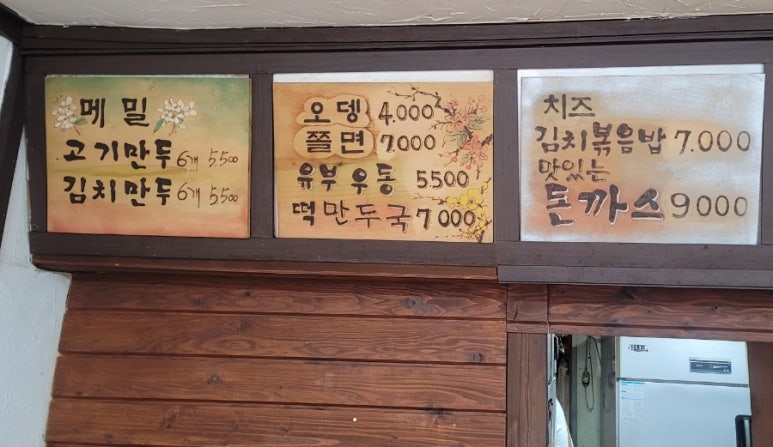 메밀
고기만두 6개 5500
김치만두 6개 5500
오뎅 4.000
쫄면 7.000
유부우동 5.500
떡만두국 7000
치즈
김치볶음밥 7.000
맛있는
돈까스 9000